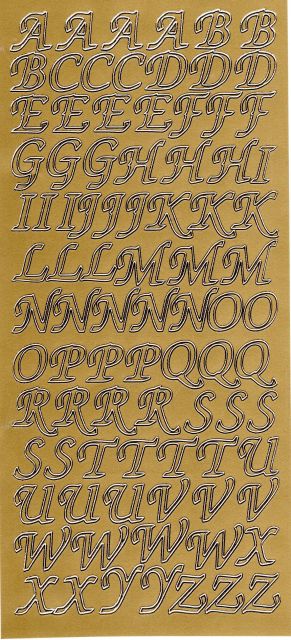 A A A A B B
B C C C D D D
E E E E F F F
G G G H H H I
I I I J J J K K K
L L L M M M
N N N N N O O
O P P P Q Q Q
R R R R S S S
S S T T T T U
U U U V V V
W W W W X
X X Y Y Z Z Z